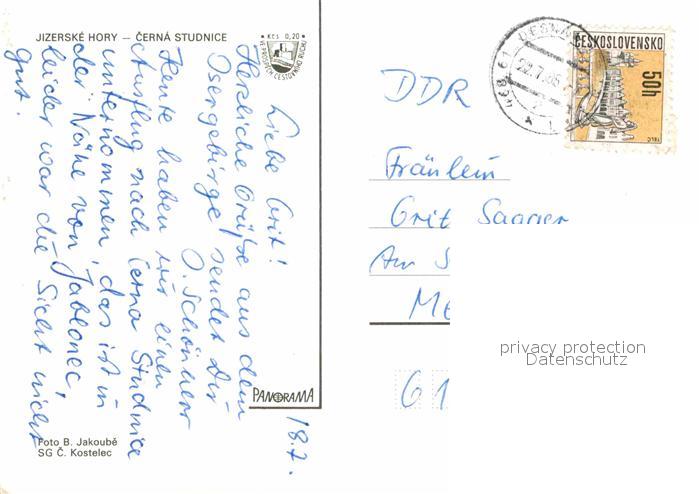 JIZERSKÉ HORY – ČERNÁ STUDNICE
Kčs 0,20
VE PROSPĚCH CESTOVNÍHO RUCHU
18.7.
Liebe Grit!
Herzliche Grüße aus dem
Isergebirge sendet Dir
O. Schönherr
Heute haben wir einen
Ausflug nach Černa Studnice
unternommen, das ist in
der Nähe von Jablonec,
leider war die Sicht nicht
gut.
PANORAMA
Foto B. Jakoubě
SG Č. Kostelec
468 61
22.7.
ČESKOSLOVENSKO
50h
TELČ
DDR
Fräulein
Grit Saarer
Am S
Me
61
privacy protection
Datenschutz